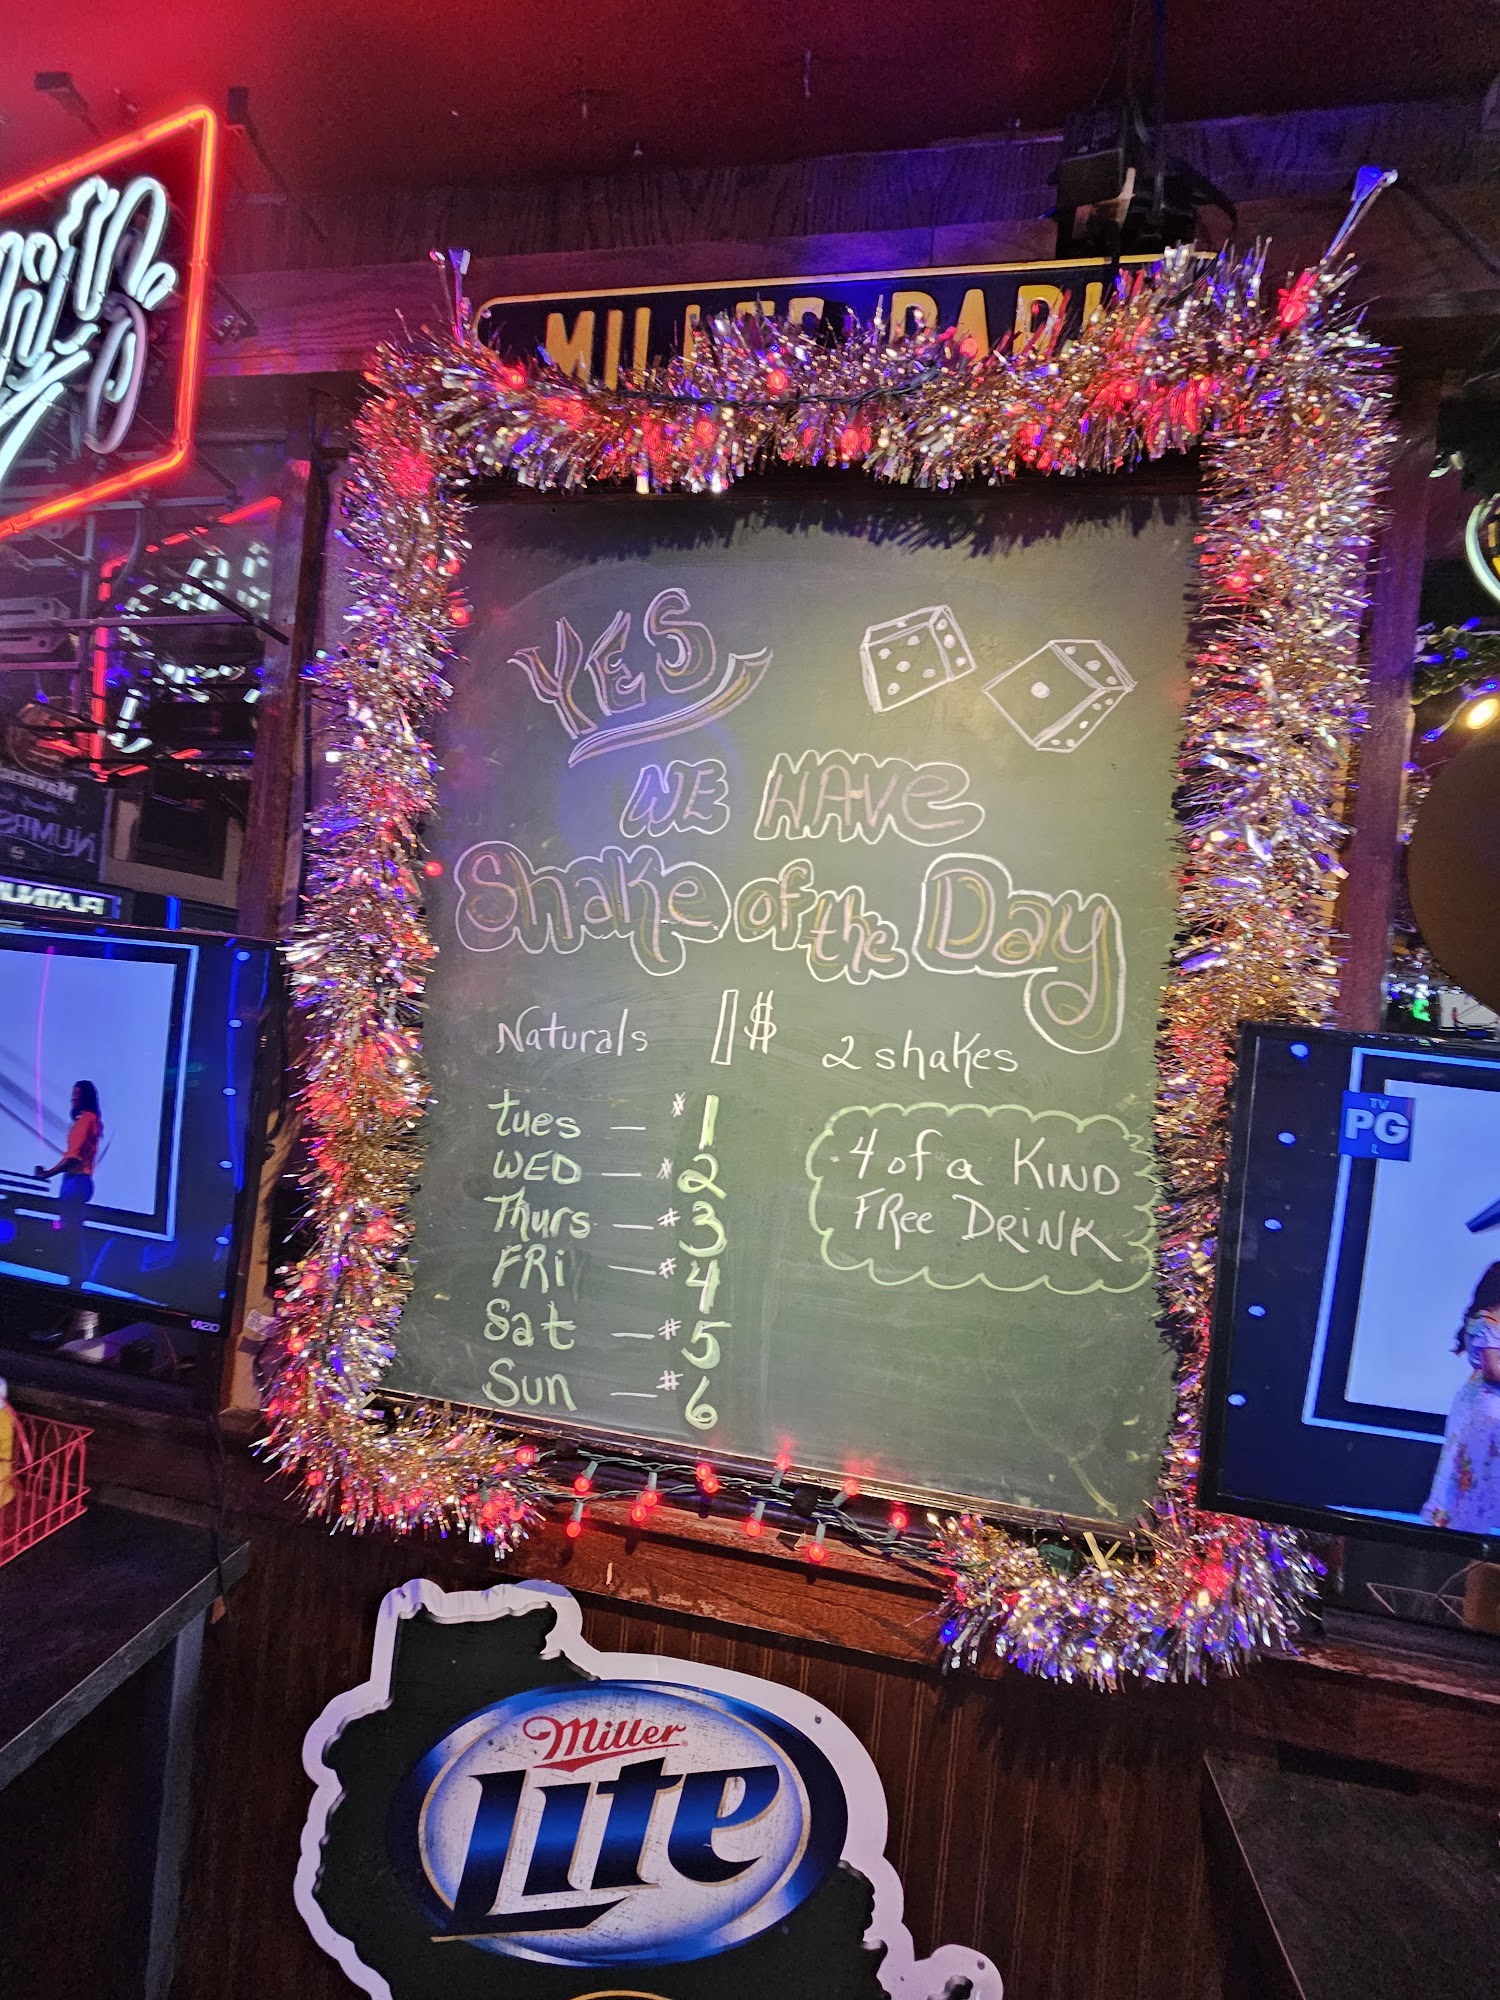 MILLER PARK
YES
WE HAVE
Shake of the Day
Naturals 1$ 2 shakes
tues — $1
WED — #2
Thurs — #3
FRi — #4
Sat — #5
Sun — #6
4 of a KIND
FRee DRiNK
TV
PG
L
VIZIO
Miller
Lite